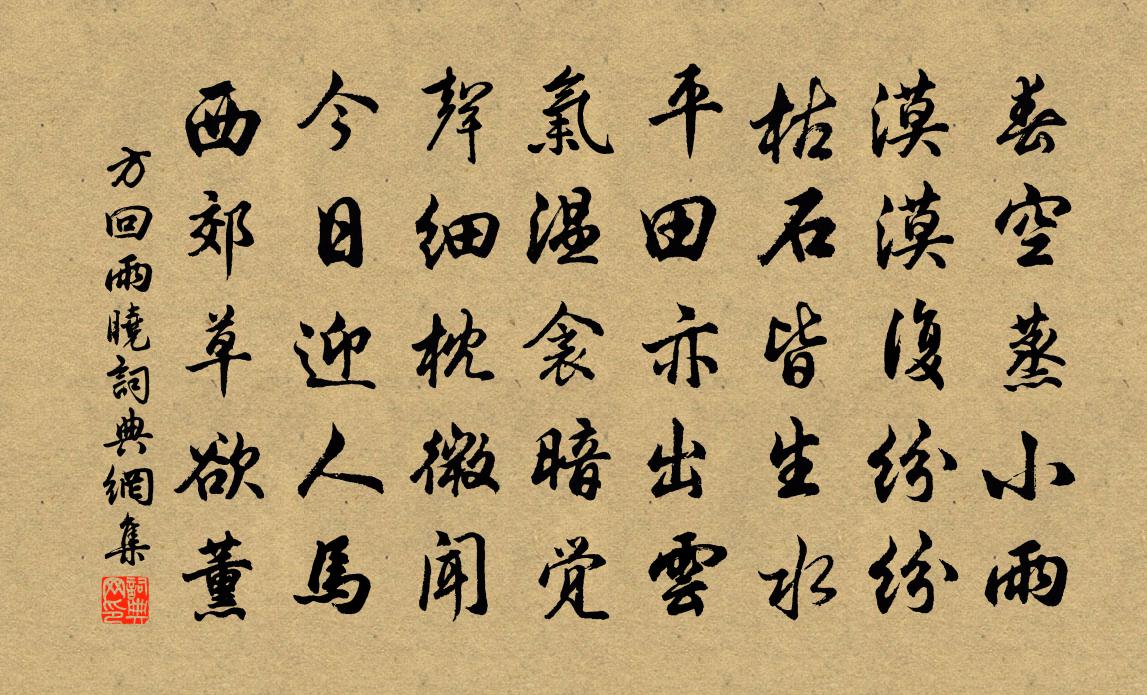 春空蒸小雨
漠漠復紛紛
枯石皆生水
平田亦出雲
氣濕衾暗覚
聲細枕微聞
今日迎人馬
西郊草欲薰
方回雨曉詞典網集
詞典网印